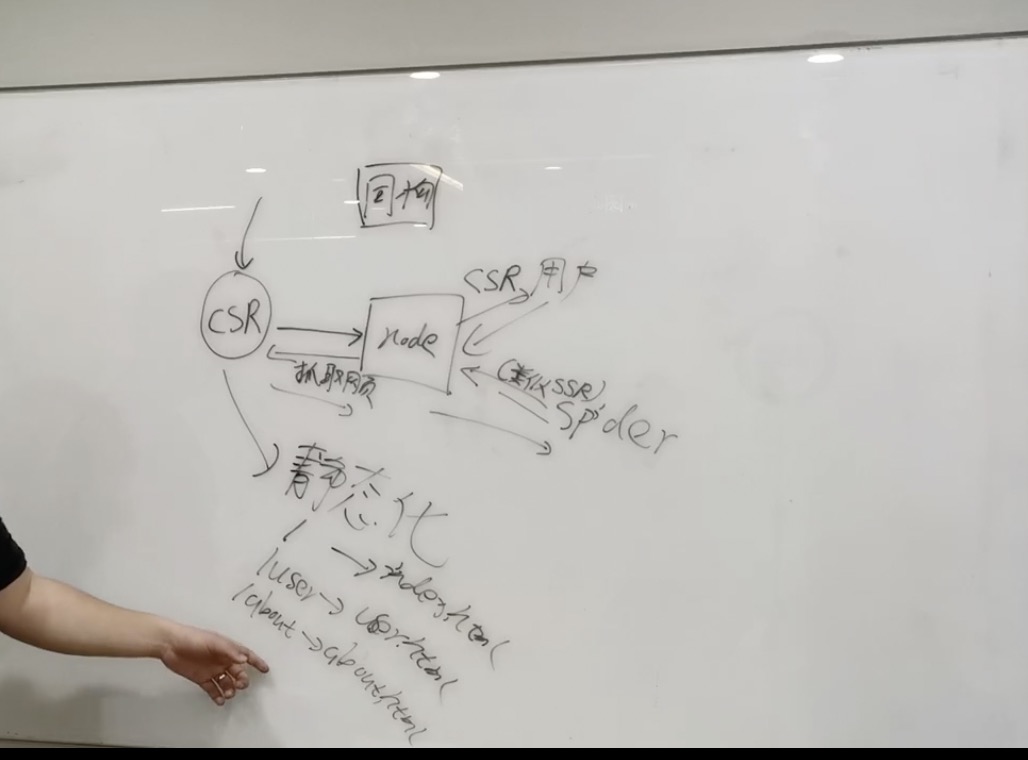 同构
CSR 用户
CSR
node
抓取网页
(类似SSR)
spider
静态化
/ → index.html
/user → user.html
/about → about.html